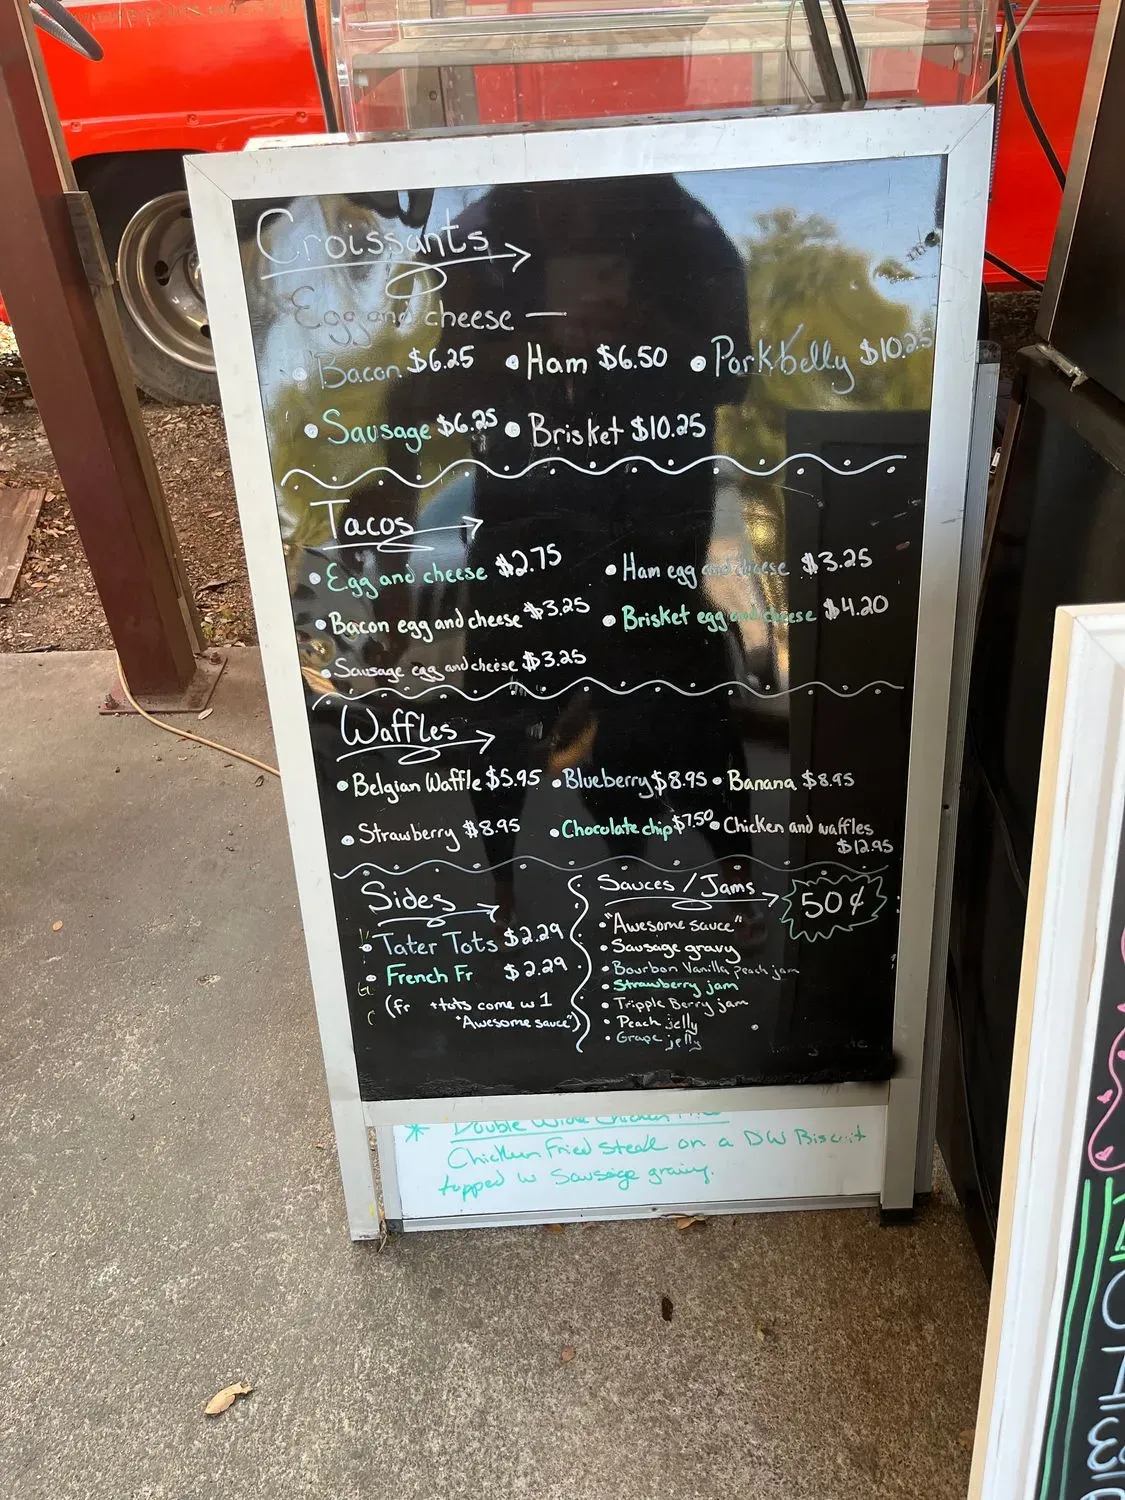 Croissants
Egg and cheese —
• Bacon $6.25 • Ham $6.50 • Porkbelly $10.25
• Sausage $6.25 • Brisket $10.25
Tacos
• Egg and cheese $2.75 • Ham egg and cheese $3.25
• Bacon egg and cheese $3.25 • Brisket egg and cheese $4.20
• Sausage egg and cheese $3.25
Waffles
• Belgian Waffle $5.95 • Blueberry $8.95 • Banana $8.95
• Strawberry $8.95 • Chocolate chip $7.50 • Chicken and waffles
$12.95
Sides
• Tater Tots $2.29
• French Fr $2.29
(fr +tots come w 1
"Awesome sauce")
Sauces / Jams 50¢
• "Awesome sauce"
• Sausage gravy
• Bourbon Vanilla peach jam
• Strawberry jam
• Tripple Berry jam
• Peach jelly
• Grape jelly
* Double Wide Chicken
Chicken Fried Steak on a DW Biscuit
topped w Sausage gravy.